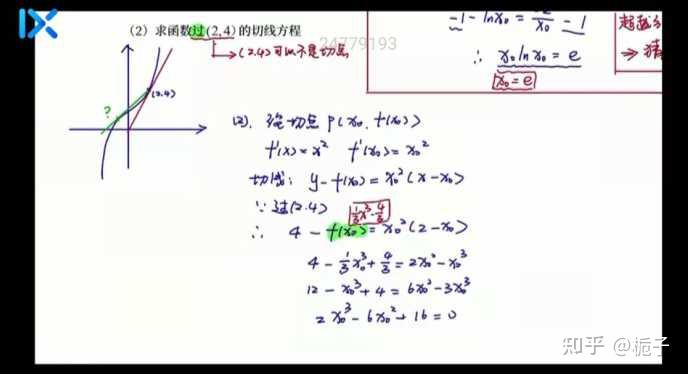 （2）求函数过(2,4)的切线方程
34779193
→(2.4)可以不是切点
-1-lnx₀= -1
∴ x₀lnx₀=e
x₀=e
⇒猜
?
(2.4)
(2). 设切点P(x₀,f(x₀))
f'(x)=x² f'(x₀)=x₀²
切线: y-f(x₀)=x₀²(x-x₀)
∵过(2.4)
⅓x³+4/3
∴ 4-f(x₀)=x₀²(2-x₀)
4-⅓x₀³+4/3=2x₀²-x₀³
12-x₀³+4=6x₀²-3x₀³
2x₀³-6x₀²+16=0
知乎 @栀子